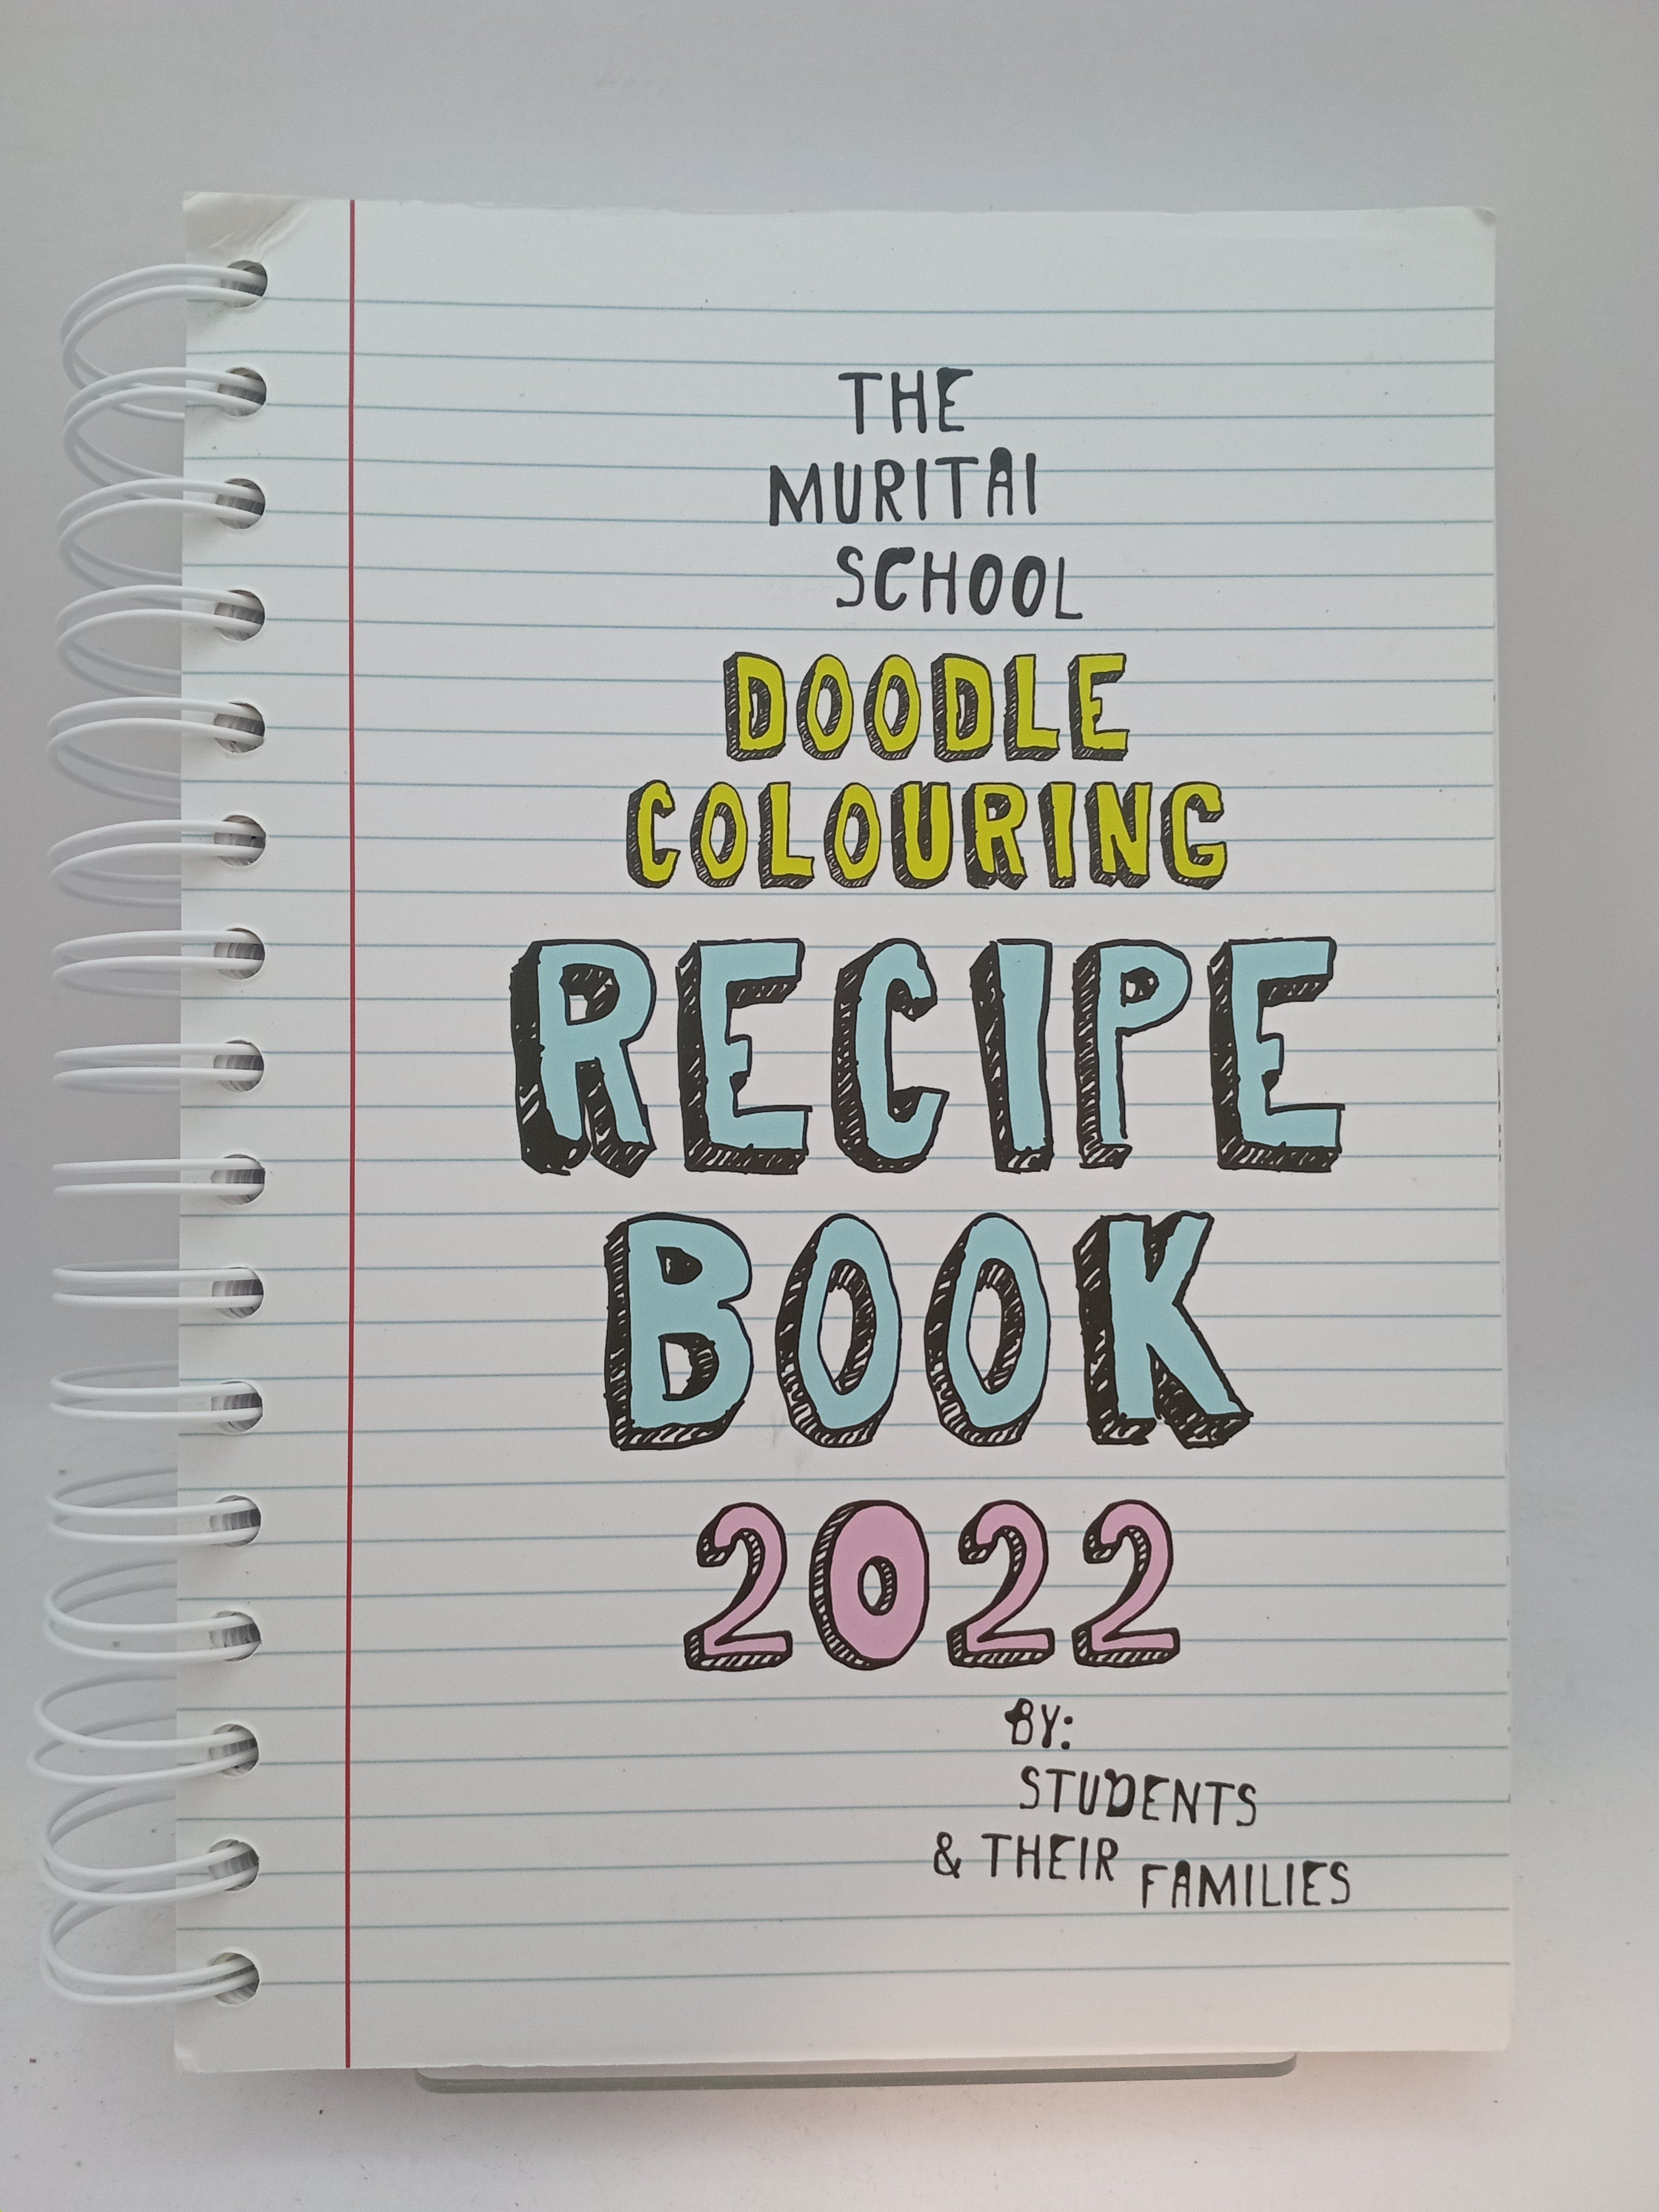 THE
MURITAI
SCHOOL
DOODLE
COLOURING
RECIPE
BOOK
2022
BY:
STUDENTS
& THEIR FAMILIES